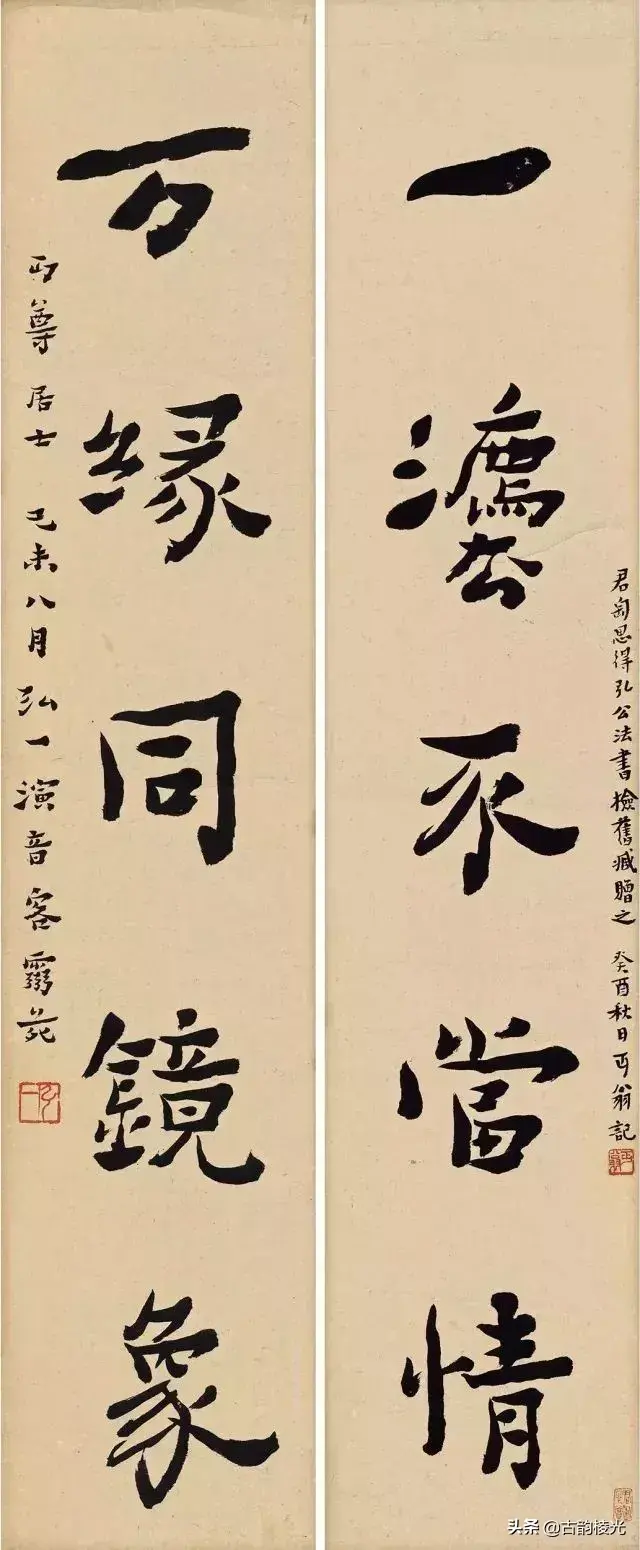 一灋不當情
君匋思得弘公法書檢舊臧贈之 癸酉秋日丏翁記
万緣同鏡象
丏尊居士 己未八月弘一演音客靈苑
弘一
头条 @古韵棱光